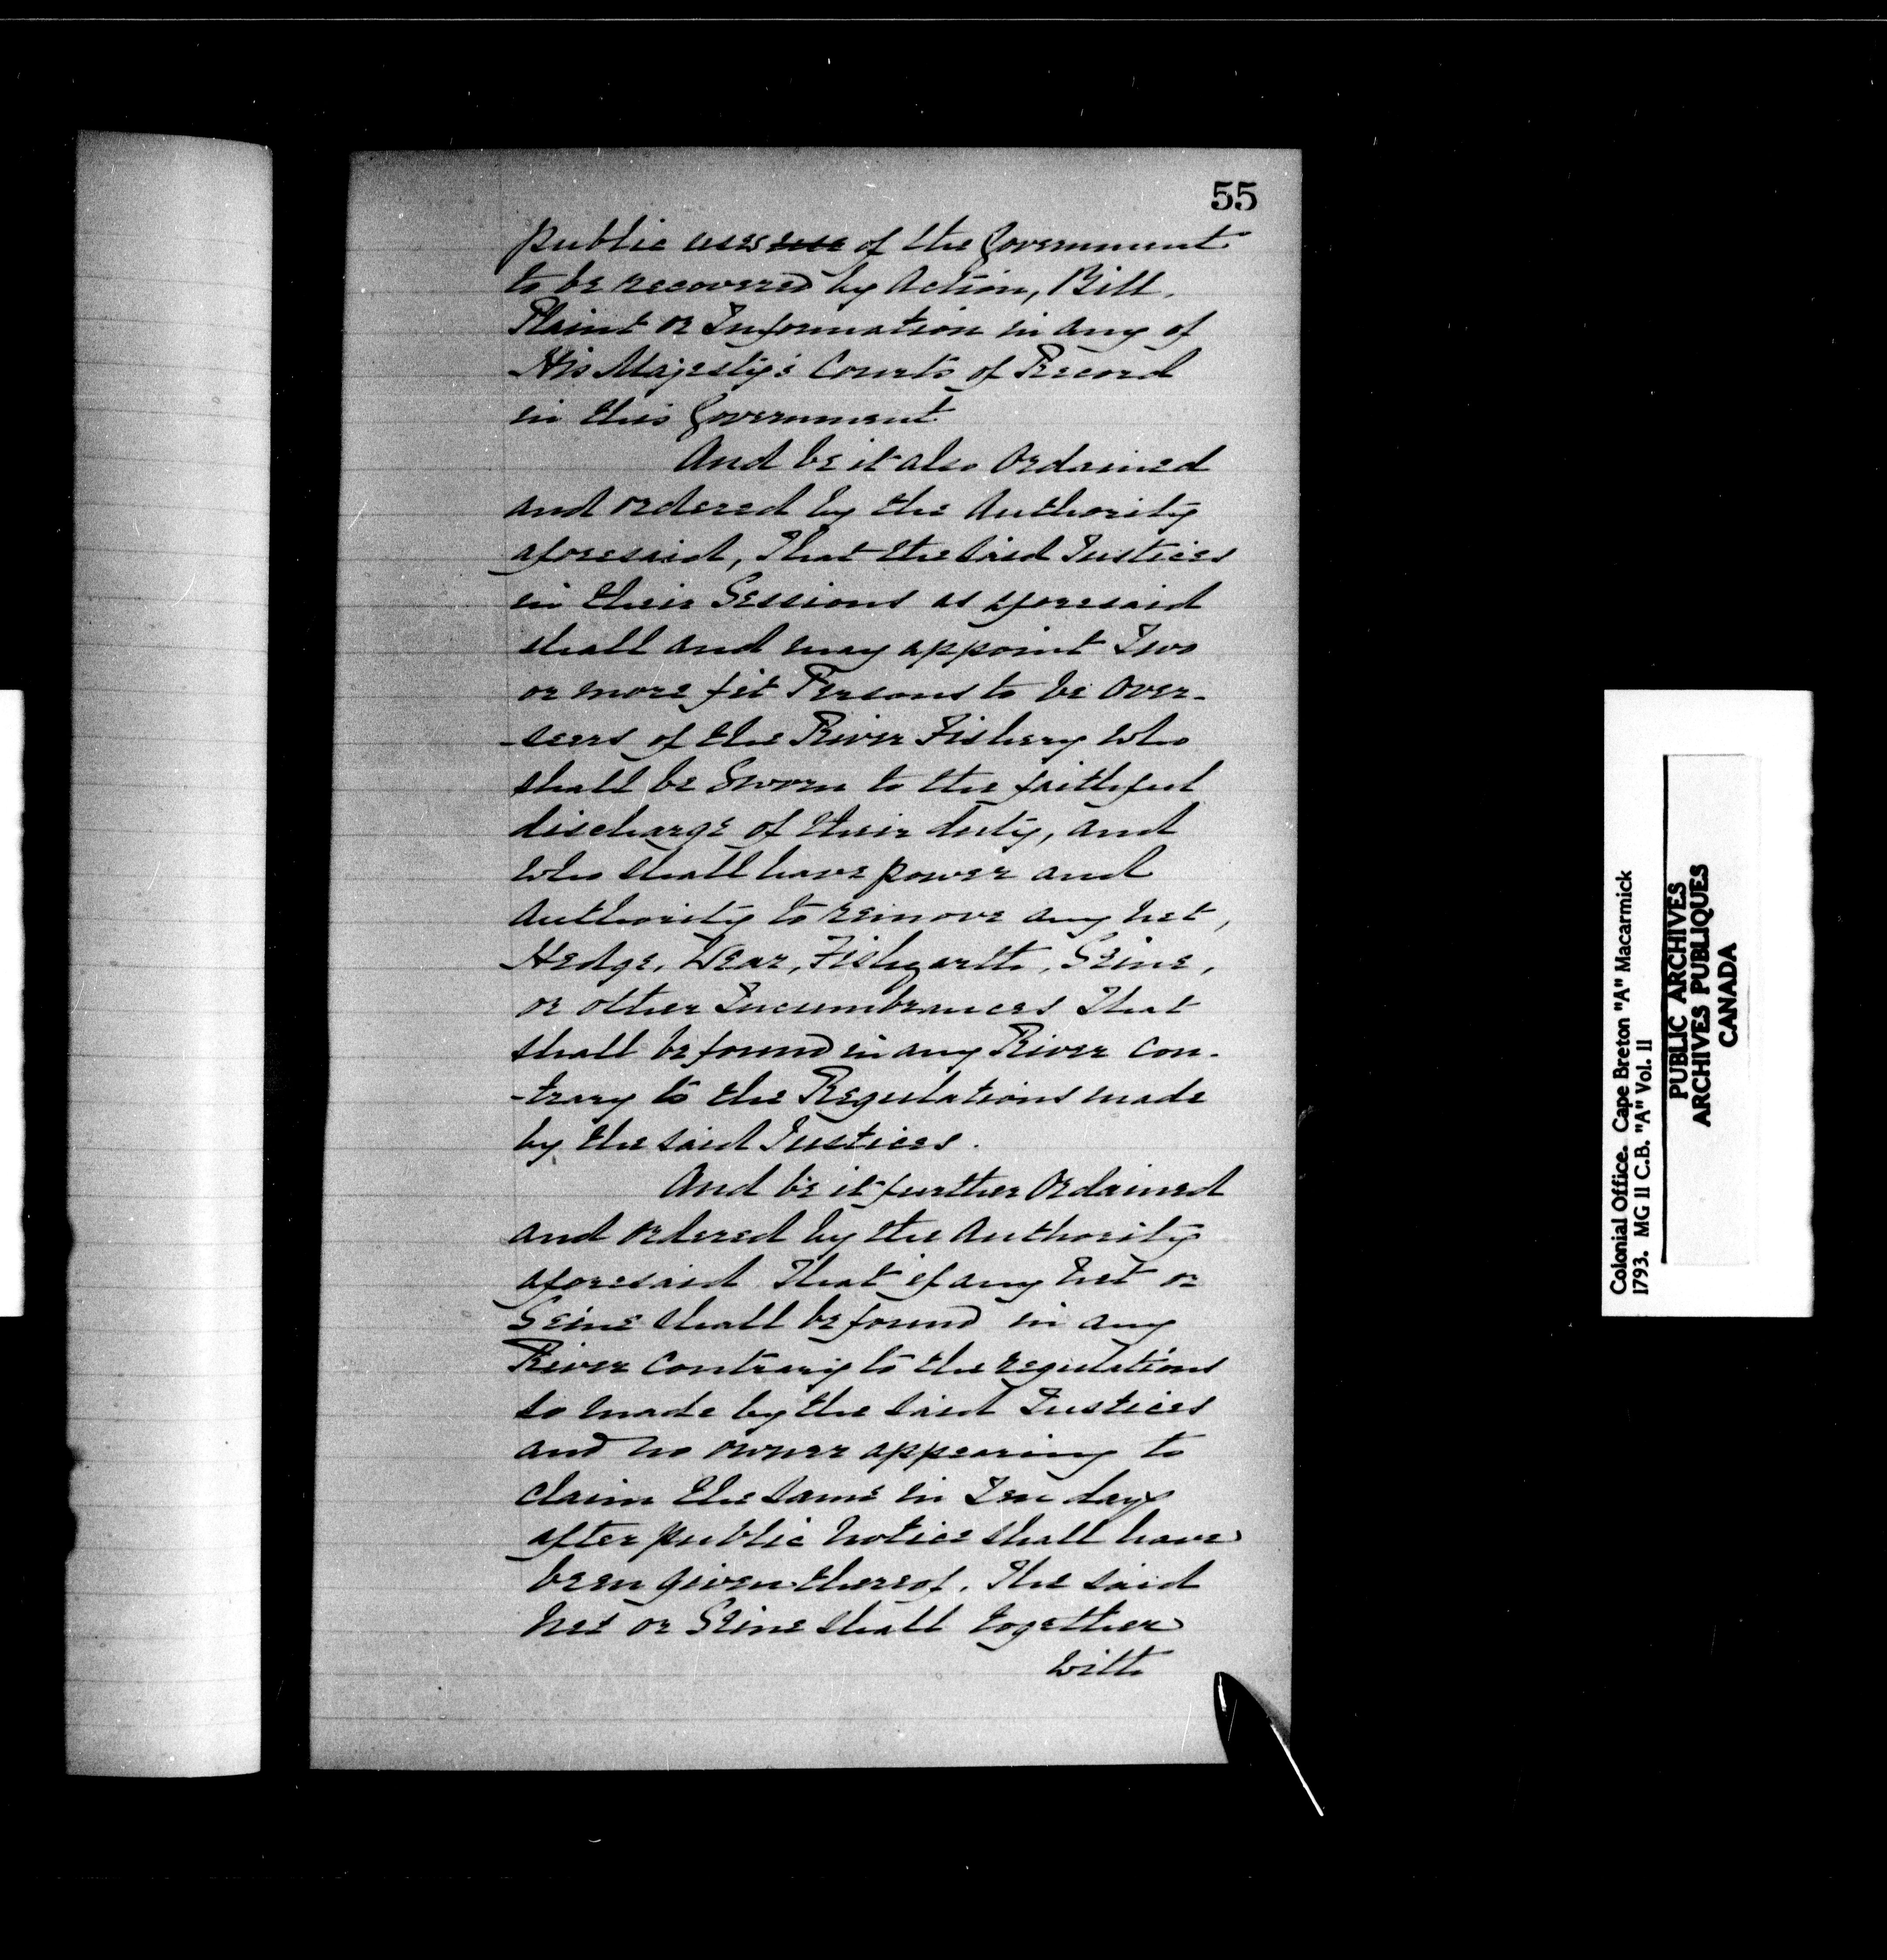 55
public uses use of the Government
to be recovered by Action, Bill,
Plaint or Information in any of
His Majesty's Courts of Record
in this Government
And be it also Ordained
and ordered by the Authority
aforesaid, That the said Justices
in their Sessions as aforesaid
shall and may appoint Two
or more fit Persons to be Over-
-seers of the River Fishery who
shall be Sworn to the faithful
discharge of their duty, and
who shall have power and
Authority to remove any net,
Hedge, Wear, Fishgarth, Seine,
or other Incumbrances That
shall be found in any River Con-
-trary to the Regulations made
by the said Justices.
And be it further Ordained
and ordered by the Authority
aforesaid That if any Net or
Seine shall be found in any
River Contrary to the regulations
so made by the said Justices
and no owner appearing to
claim the same in Ten days
after public Notice shall have
been given thereof, The said
Net or Seine shall together
with
Colonial Office. Cape Breton "A" Macarmick
1793. MG II C.B. "A" Vol. II
PUBLIC ARCHIVES
ARCHIVES PUBLIQUES
CANADA